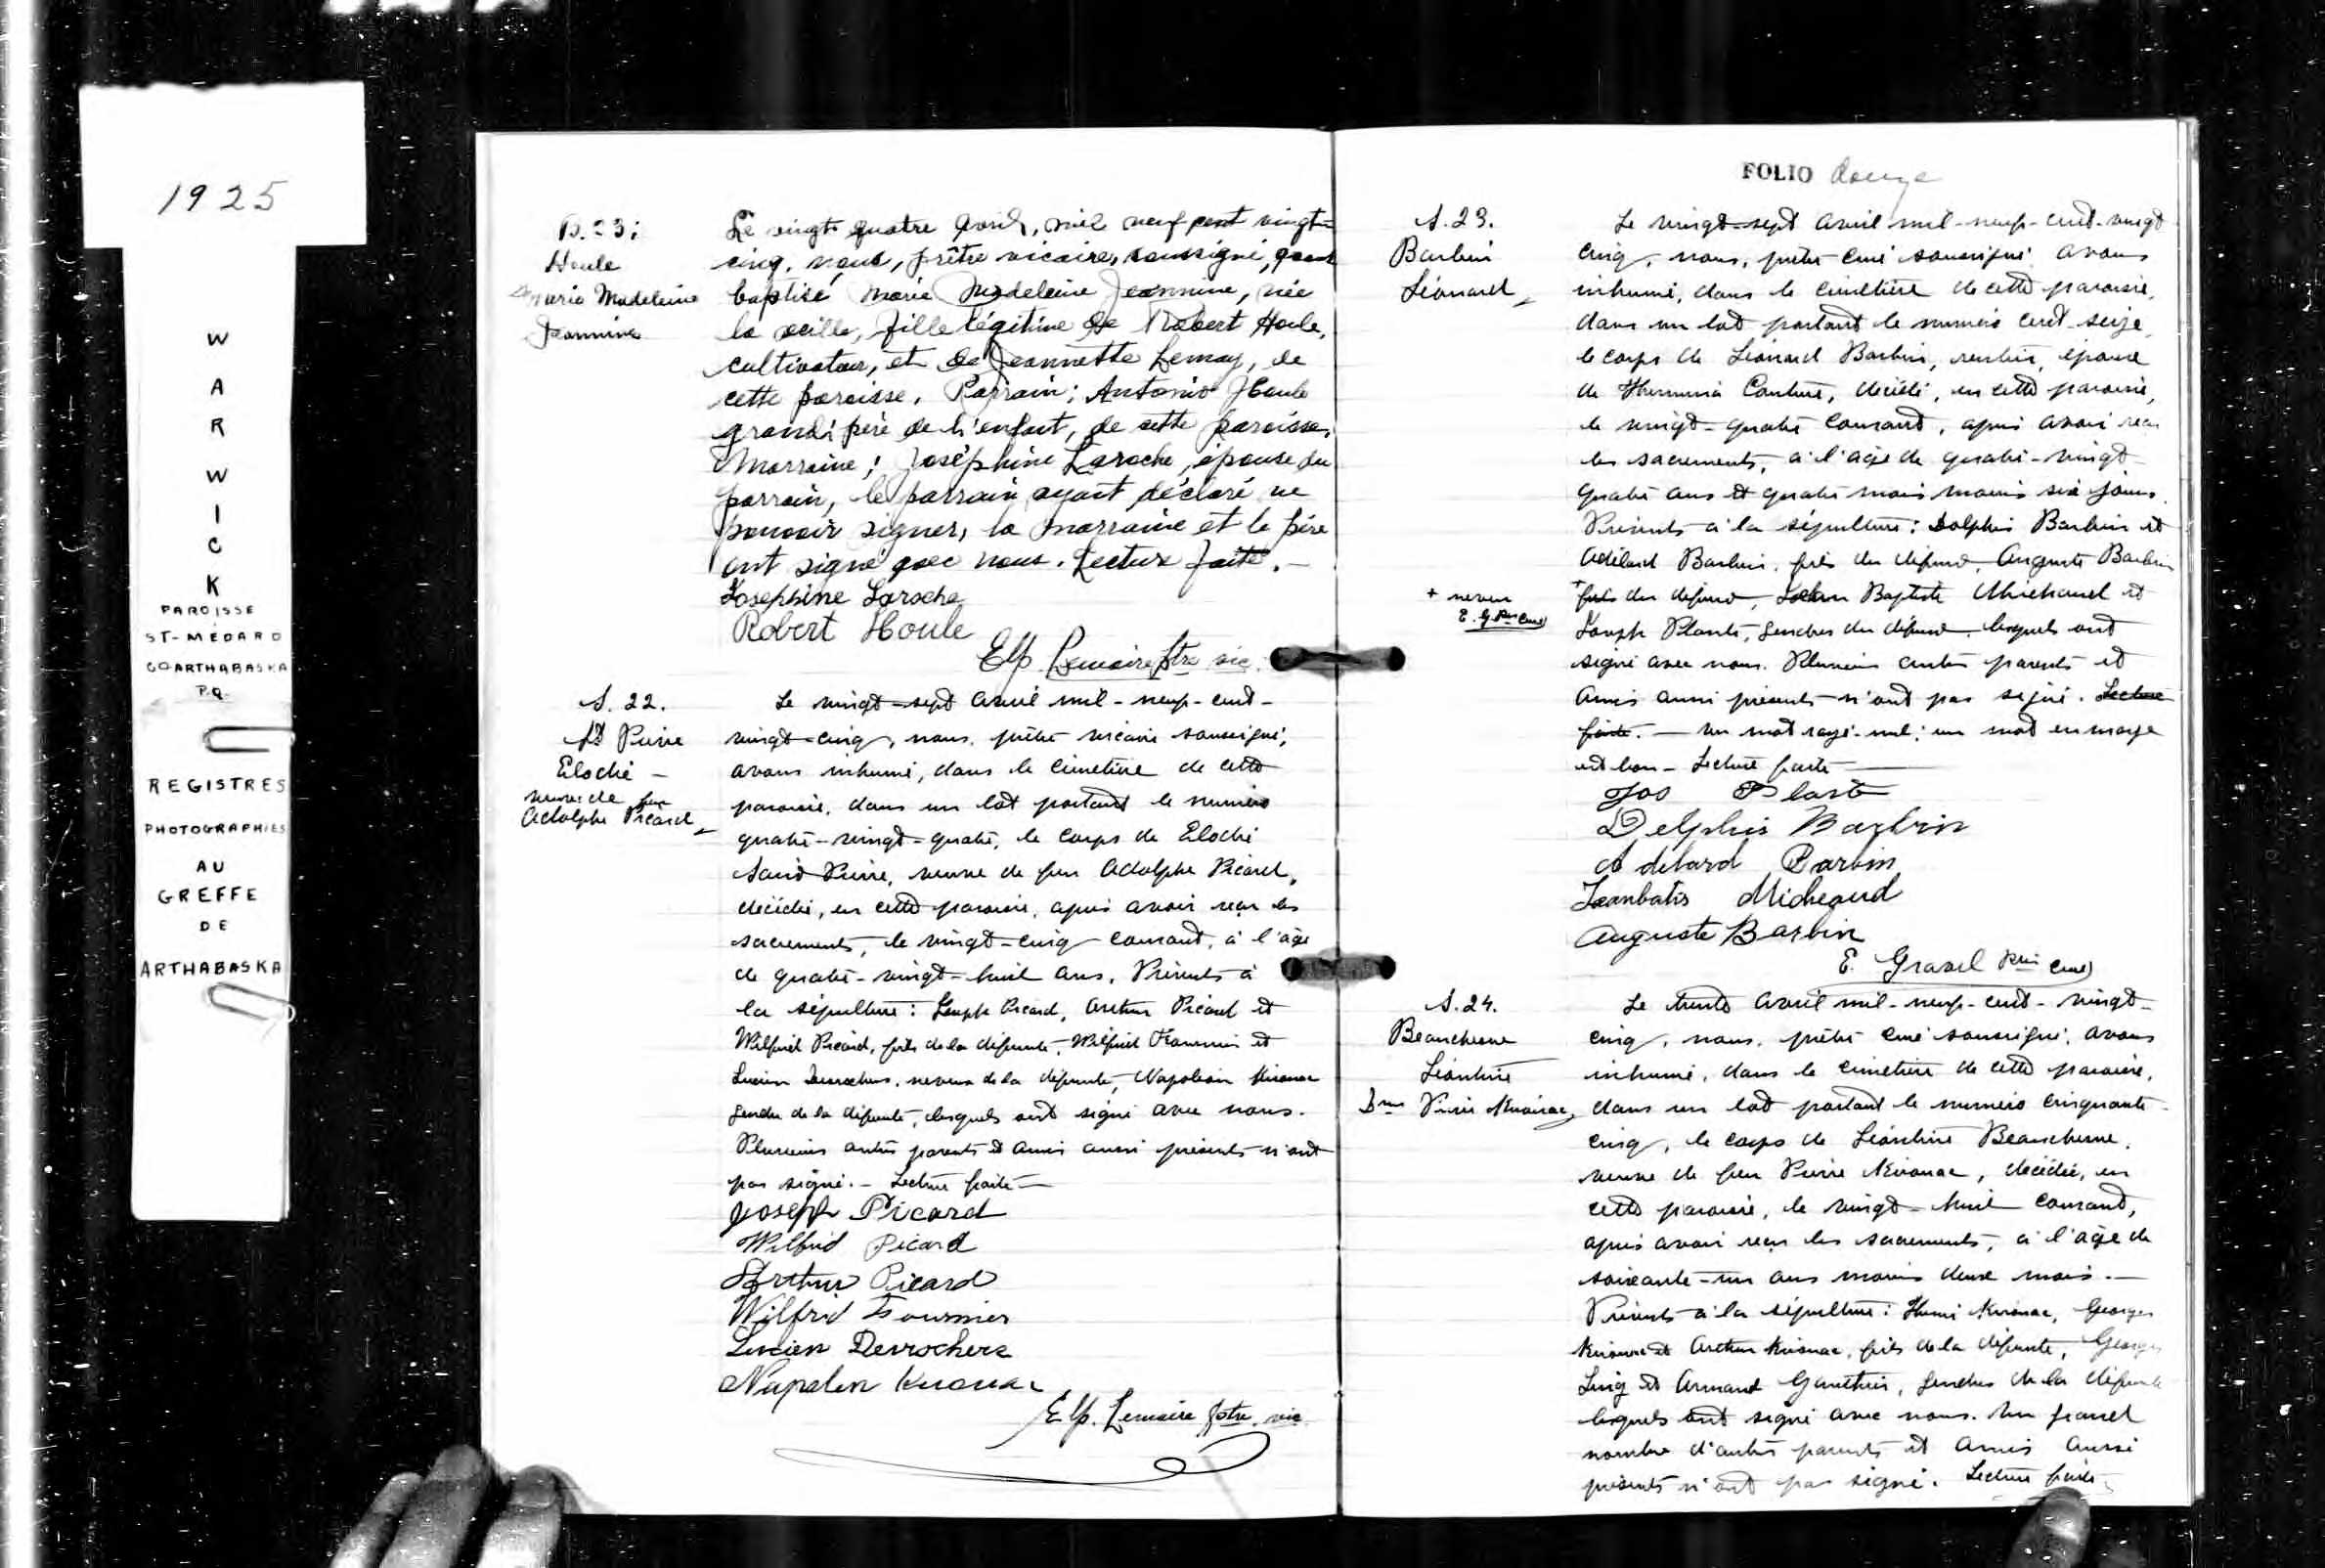 1925
W
A
R
W
I
C
K
PAROISSE
ST-MÉDARD
CO ARTHABASKA
P.Q.
REGISTRES
PHOTOGRAPHIES
AU
GREFFE
DE
ARTHABASKA
B. 23;
Houle
Marie Madeleine
Jeannine
Le vingt quatre avril, mil neuf cent vingt-
cinq, nous, prêtre vicaire, soussigné, avons
baptisé Marie Madeleine Jeannine, née
la veille, fille légitime de Robert Houle,
cultivateur, et de Jeannette Lemay, de
cette paroisse. Parrain; Antonio Houle
grand'père de l'enfant, de cette paroisse.
Marraine; Joséphine Laroche, épouse du
parrain, le parrain ayant déclaré ne
pouvoir signer, la marraine et le père
ont signé avec nous. Lecture faite.-
Josephine Laroche
Robert Houle
Elp. Lemaire ptre vic.
S. 22.
St Pierre
Elodie -
veuve de feu
Adolphe Picard
Le vingt-sept avril mil-neuf-cent-
vingt-cinq, nous, prêtre vicaire soussigné,
avons inhumé, dans le cimetière de cette
paroisse, dans un lot portant le numéro
quatre-vingt-quatre, le corps de Elodie
Saint Pierre, veuve de feu Adolphe Picard,
décédée, en cette paroisse, après avoir reçu les
sacrements, le vingt-cinq courant, à l'âge
de quatre-vingt-huit ans. Présents à
la sépulture: Joseph Picard, Arthur Picard et
Wilfrid Picard, fils de la défunte, Wilfrid Fournier et
Lucien Desrochers, neveux de la défunte, Napoléon Kirouac
gendre de la défunte, lesquels ont signé avec nous.
Plusieurs autres parents et amis aussi présents n'ont
pas signé. - Lecture faite -
Joseph Picard
Wilfrid Picard
Arthur Picard
Wilfrid Fournier
Lucien Desrochers
Napoleon Kirouac
Elp. Lemaire ptre. vic.
FOLIO douze
S. 23.
Barbin
Léonard
+ neveu
E. G. Ptre Curé
Le vingt-sept avril mil-neuf-cent-vingt
cinq, nous, prêtre curé soussigné avons
inhumé, dans le cimetière de cette paroisse,
dans un lot portant le numéro cent-seize
le corps de Léonard Barbin, rentier, époux
de Couture, décédé, en cette paroisse,
le vingt-quatre courant, après avoir reçu
les sacrements, à l'âge de quatre-vingt-
quatre ans et quatre mois moins six jours.
Présents à la sépulture: Delphis Barbin et
Adélard Barbin, fils du défunt, Auguste Barbin
+ fils du défunt, Jean Baptiste Michaud et
Joseph Plante, gendres du défunt, lesquels ont
signé avec nous. Plusieurs autres parents et
amis aussi présents n'ont pas signé. Lecture
faite. - Un mot rayé nul; un mot en marge
est bon - Lecture faite -
Jos Plante
Delphis Barbin
Adelard Barbin
Jeanbatis Micheaud
Auguste Barbin
E. Gravel Ptre Curé
S. 24.
Beauchesne
Léontine
Dme Pierre Kirouac
Le trente avril mil-neuf-cent-vingt-
cinq, nous, prêtre curé soussigné, avons
inhumé, dans le cimetière de cette paroisse,
dans un lot portant le numéro cinquante-
cinq, le corps de Léontine Beauchesne,
veuve de feu Pierre Kirouac, décédée, en
cette paroisse, le vingt-huit courant,
après avoir reçu les sacrements, à l'âge de
soixante-un ans moins deux mois. -
Présents à la sépulture: Henri Kirouac, Georges
Kirouac et Arthur Kirouac, fils de la défunte, Georges
et Armand Gauthier, gendres de la défunte
lesquels ont signé avec nous. Un grand
nombre d'autres parents et amis aussi
présents n'ont pas signé. Lecture faite -